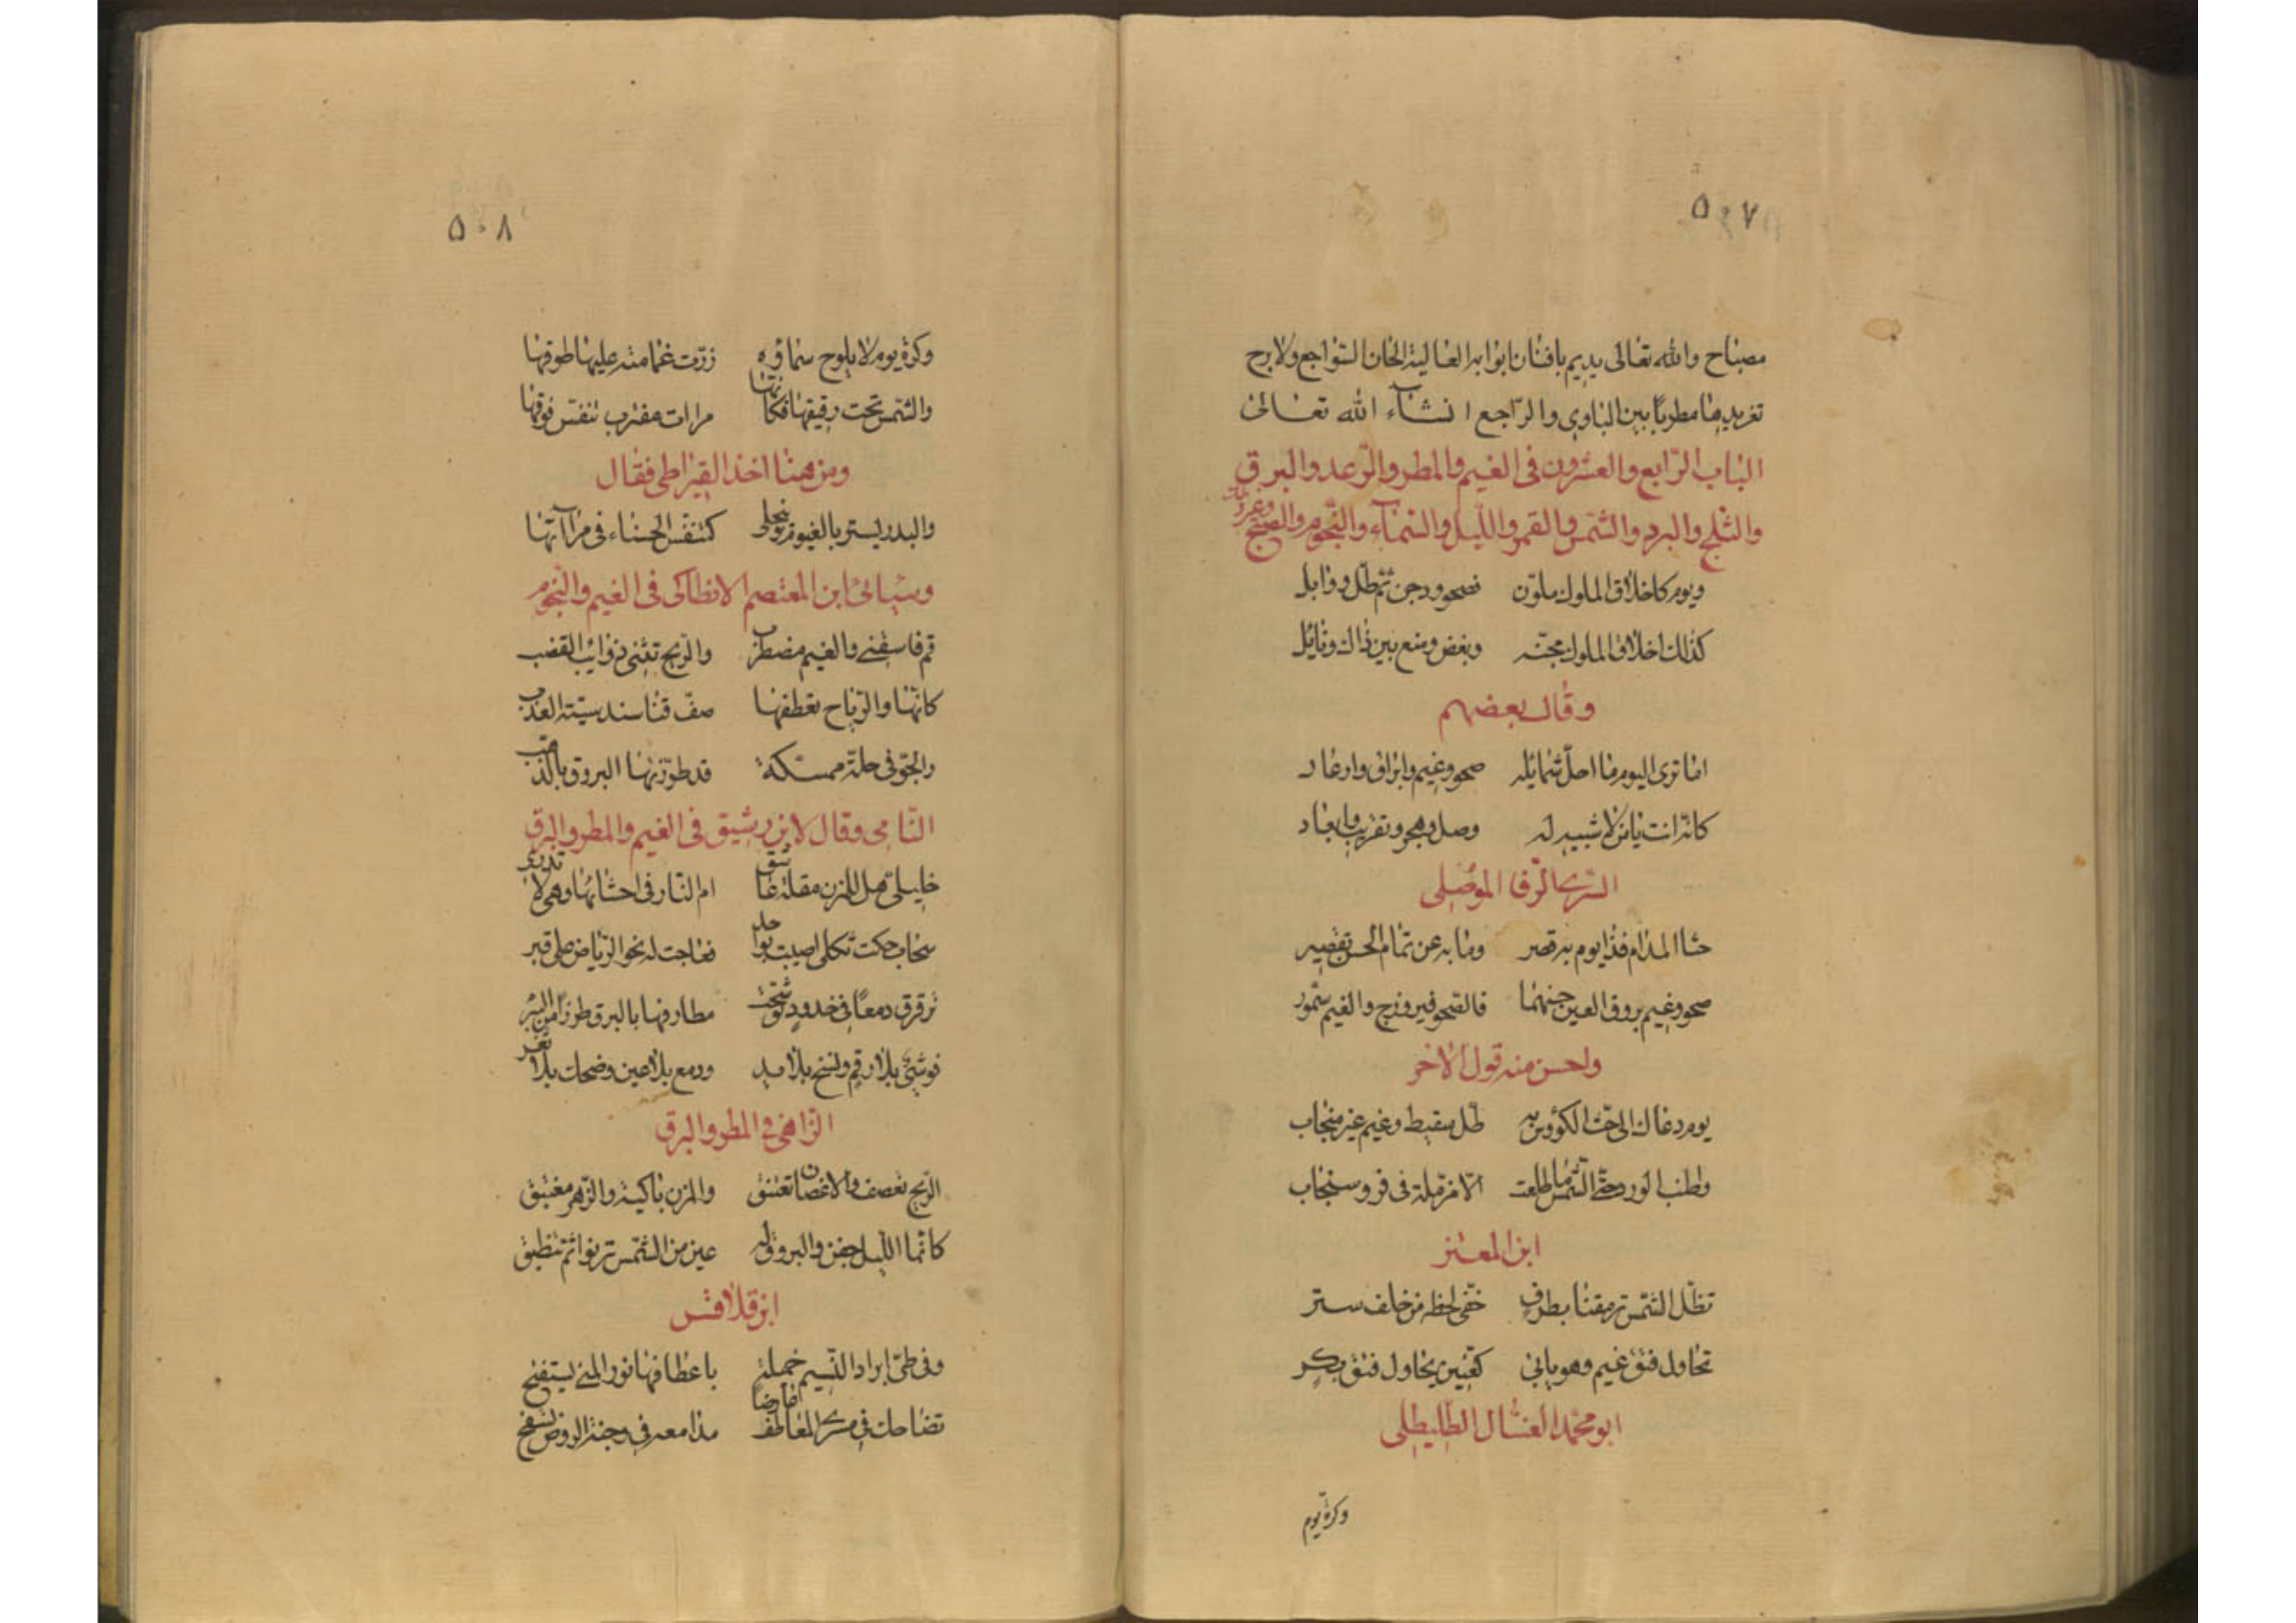 ٥٠٧
مصباح والله تعالى يديم بافنان ابوابه العالية الحان السواجع ولا برح
تغريدها مطربا بين البادى والراجع انشاء الله تعالى
الباب الرابع والعشرون فى الغيم والمطر والرعد والبرق
والثلج والبرد والشمس والقمر والليل والسماء والنجوم والصبح وغير ذلك
ويوم كاخلاق الملوك ملون فصحو ودجن ثم طل ووابل
كذلك اخلاق الملوك محبة وبغض ومنع بين ذاك ونايل
وقال بعضهم
اما ترى اليوم ما احلى شمائله صحو وغيم وابراق وارعاد
كانه انت يا من لا شبيه له وصل وهجر وتقريب وابعاد
السرى الرفا الموصلى
حثا المدام فذا يوم به قصر وما به عن تمام الحسن تقصير
صحو وغيم يروق العين حسنهما فالصحو فيروزج والغيم سمور
واحسن منه قول الاخر
يوم دعاك الى حث الكؤوس به طل سقيط وغيم غير منجاب
الورد حتى الشمس ما طلعت الا مزملة فى فرو سنجاب
ابن المعتز
تظل الشمس ترمقنا بطرف خفى لحظه من خلف ستر
تحاول فتق غيم وهو يابى كعنين يحاول فتق بكر
ابو محمد العسال الطليطلى
وكرة يوم
٥٠٨
وكرة يوم لا يلوح سماؤه زرت غمامته عليها طوقها
والشمس تحت رقيقها فكانها مرات تنفس فوقها
ومن هنا اخذ القيراطى فقال
والبدر يستر بالغيوم وينجلى كتنفس الحسناء فى مراآتها
ابن المعتصم الانطاكى فى الغيم والنجوم
قم فاسقنى والغيم مضطرب والريح تثنى ذوائب القضب
كانها والرياح تعطفها صف قنا سندسية العذب
والجو فى حلة ممسكة قد طرزتها البروق بالذهب
النامى وقال لابن رشيق فى الغيم والمطر والبرق
خليلى هل للمزن مقلة عاشق ام النار فى احشائها وهى لا تدرى
سحاب حكت ثكلى اصيبت بواحد فعاجت له نحو الرياض على قبر
ترقرق دمعا فى خدود توشحت مطارفها بالبرق طرزا من التبر
فوشى بلا رقم ونسج بلا يد ودمع بلا عين وضحك بلا ثغر
الزاهى فى المطر والبرق
الريح تعصف والاغصان تعتنق والمزن باكية والزهر مغتبق
كانما الليل جفن والبروق له عين من الشمس تربوا ثم تنطبق
ابن قلاقس
وفى طى ابراد النسيم خميلة باعطافها نور المنى يتفتح
تضاحك فى مسرى المعاطف عارضا مدامعه فى وجنة الروض تسفح